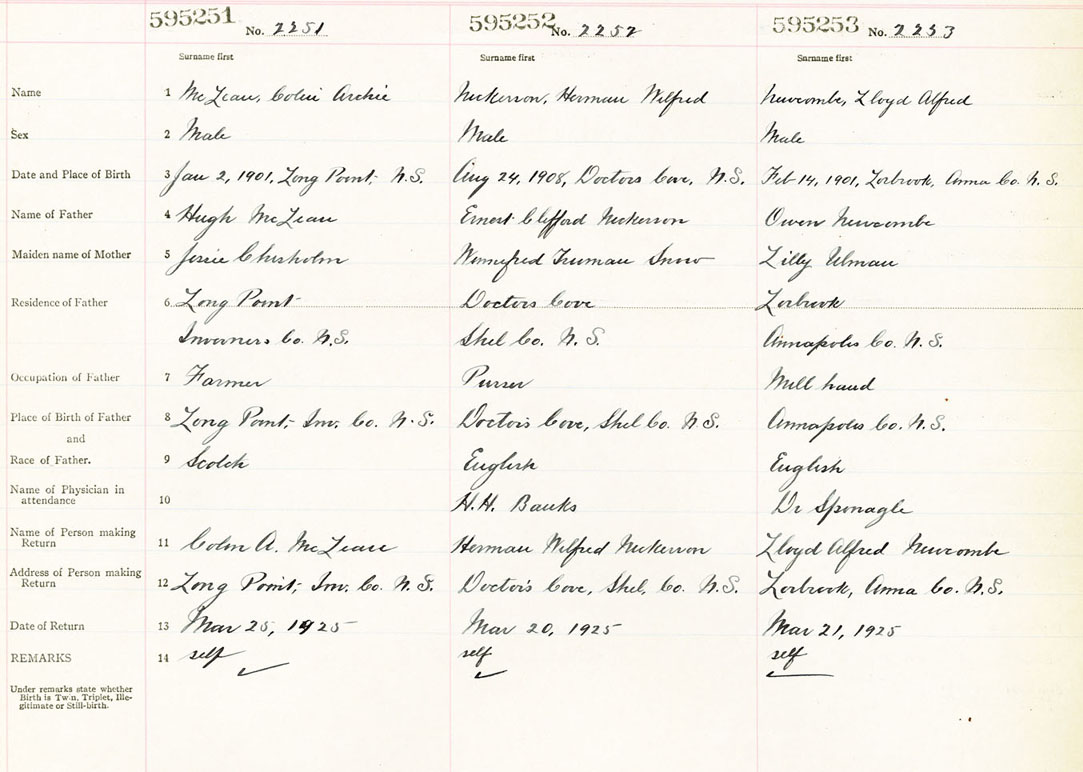 595251 No. 2251 595252 No. 2252 595253 No. 2253
Surname first Surname first Surname first
Name 1 McLean, Colin Archie Nickerson, Herman Wilfred Newcombe, Lloyd Alfred
Sex 2 Male Male Male
Date and Place of Birth 3 Jan 2, 1901, Long Point, N.S. Aug 24, 1908, Doctors Cove, N.S. Feb 14, 1901, Torbrook, Anna Co. N.S.
Name of Father 4 Hugh McLean Ernest Clifford Nickerson Owen Newcombe
Maiden name of Mother 5 Jessie Chisholm Winnefred Truman Snow Lilly Ulman
Residence of Father 6 Long Point Doctors Cove Torbrook
Inverness Co. N.S. Shel Co. N.S. Annapolis Co. N.S.
Occupation of Father 7 Farmer Purser Mill hand
Place of Birth of Father 8 Long Point, Inv. Co. N.S. Doctor's Cove, Shel Co. N.S. Annapolis Co. N.S.
and
Race of Father. 9 Scotch English English
Name of Physician in
attendance 10 H.H. Banks Dr Sponagle
Name of Person making
Return 11 Colin A. McLean Herman Wilfred Nickerson Lloyd Alfred Newcombe
Address of Person making
Return 12 Long Point, Inv. Co. N.S. Doctor's Cove, Shel. Co. N.S. Torbrook, Anna Co. N.S.
Date of Return 13 Mar 25, 1925 Mar 20, 1925 Mar 21, 1925
REMARKS 14 self self self
Under remarks state whether
Birth is Twin, Triplet, Ille-
gitimate or Still-birth.